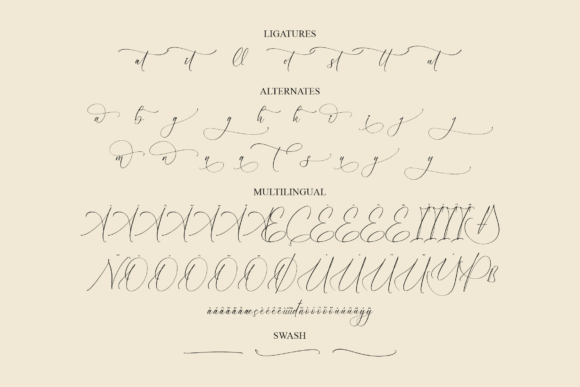 LIGATURES
at it ll ot st tt ut
ALTERNATES
a b g g h h i i j j
m n q q T s u y y
MULTILINGUAL
À Á Â Ã Ä Å Æ Ç È É Ê Ë Ì Í Î Ï Đ
Ñ Ò Ó Ô Õ Ö Ø Ù Ú Û Ü Ý Þ ß
SWASH